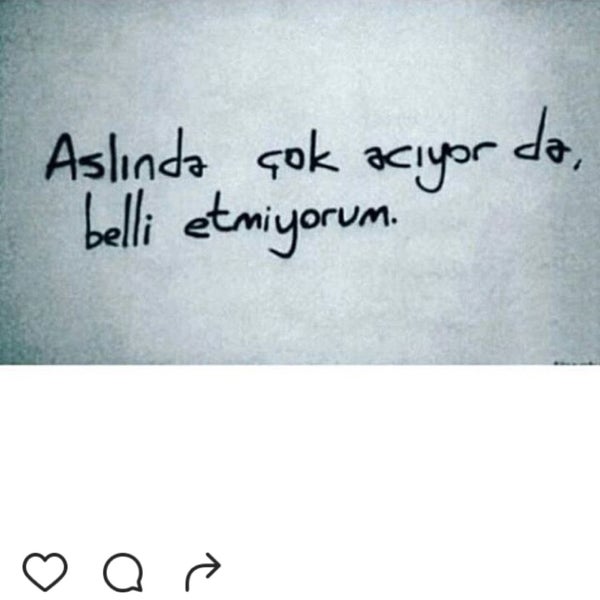 Aslında çok acıyor da,
belli etmiyorum.